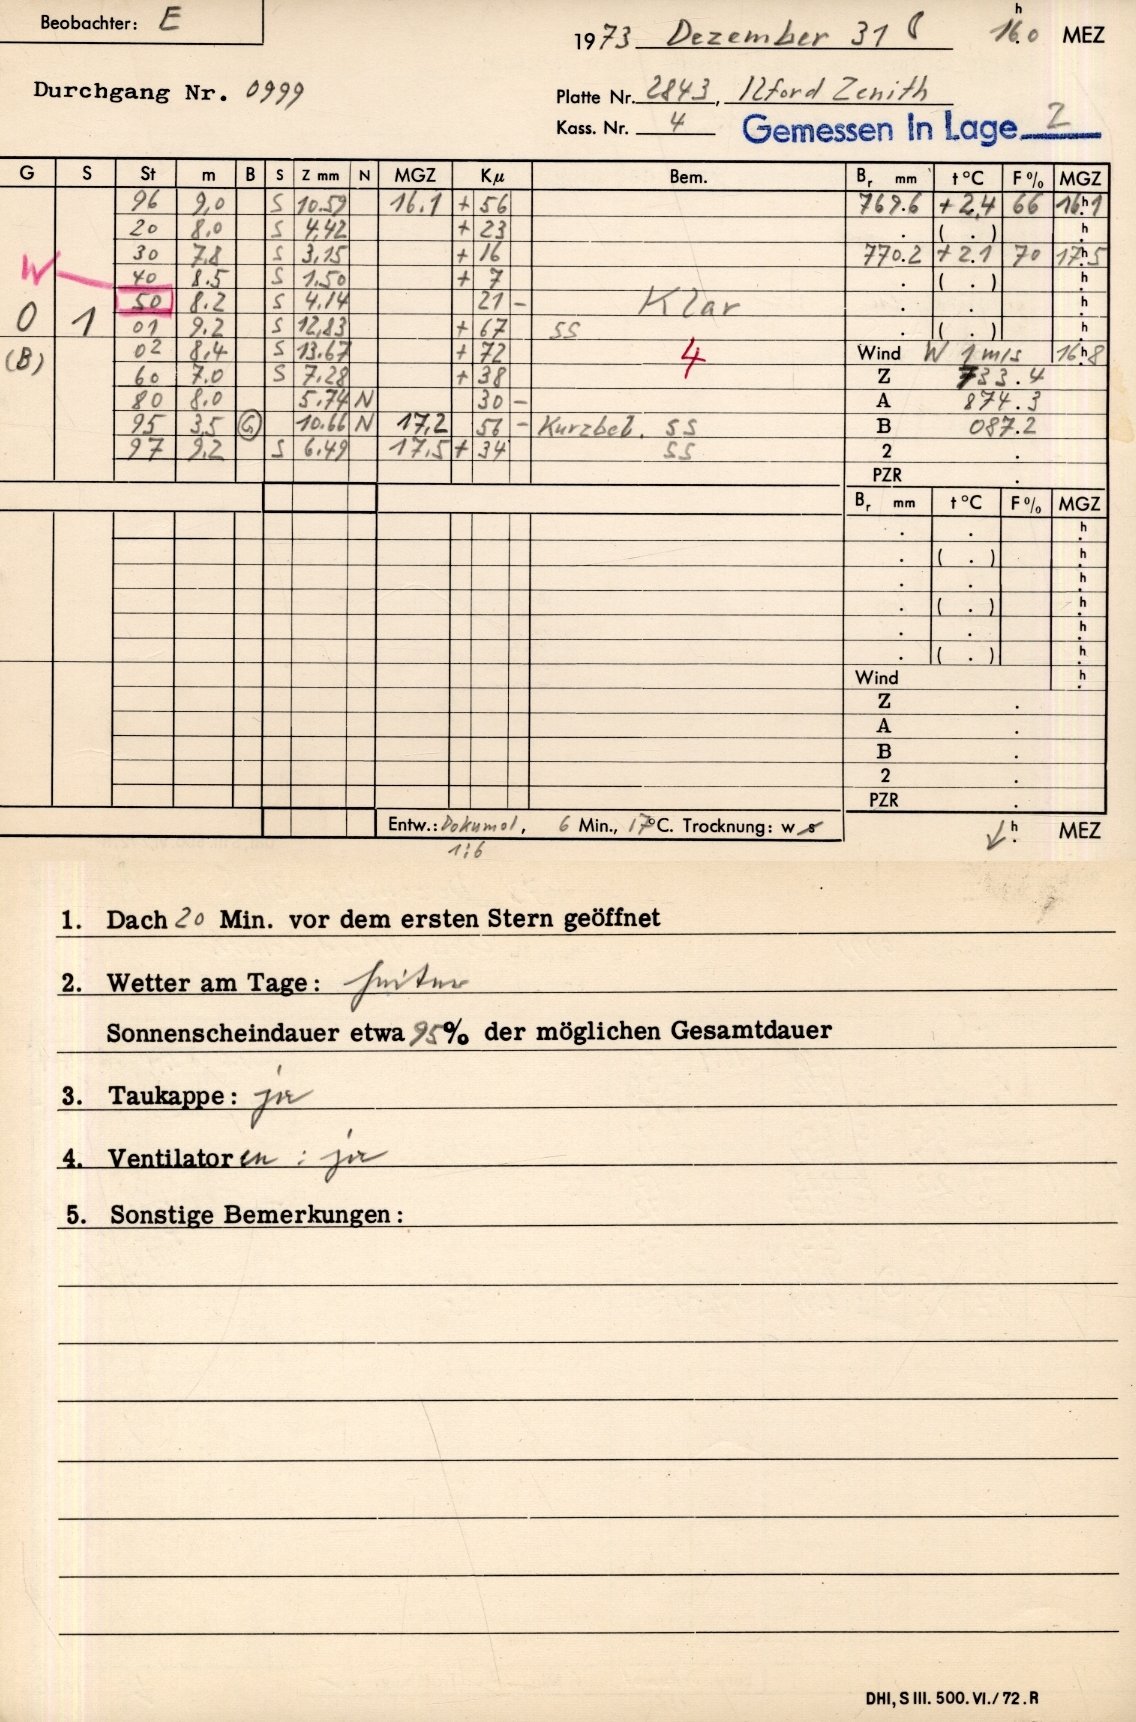 Beobachter: E
1973 Dezember 31 16.0 h MEZ
Durchgang Nr. 0999
Platte Nr. 2843, Ilford Zenith
Kass. Nr. 4
Gemessen In Lage 2
G S St m B S Z mm N MGZ Kμ Bem. Br mm t °C F % MGZ
96 9,0 S 10.59 16.1 + 56 769.6 + 2,4 66 16h1
20 8.0 S 4,42 + 23 . ( . ) h
30 7.8 S 3,15 + 16 770.2 + 2.1 70 17h5
W 40 8.5 S 1.50 + 7 . ( . ) h
50 8.2 S 4.14 21 - Klar . . h
0 1 01 9.2 S 12,83 + 67 SS . ( . ) h
(B) 02 8,4 S 13.67 + 72 4 Wind W 1 m/s 16h8
60 7.0 S 7.28 + 38 Z 733.4
80 8.0 5.74 N 30 - A 874.3
95 3.5 G 10.66 N 17,2 56 - Kurzbel. SS B 087.2
97 9.2 S 6.49 17.5 + 34 SS 2 .
PZR .
Br mm t °C F % MGZ
. . h
. ( . ) h
. . h
. ( . ) h
. . h
. ( . ) h
Wind h
Z .
A .
B .
2 .
PZR .
Entw.: Dokumol, 6 Min., 17°C. Trocknung: w s h MEZ
1:6
1. Dach 20 Min. vor dem ersten Stern geöffnet
2. Wetter am Tage: heiter
Sonnenscheindauer etwa 95% der möglichen Gesamtdauer
3. Taukappe: ja
4. Ventilatoren: ja
5. Sonstige Bemerkungen:
DHI, S III. 500. VI./72. R